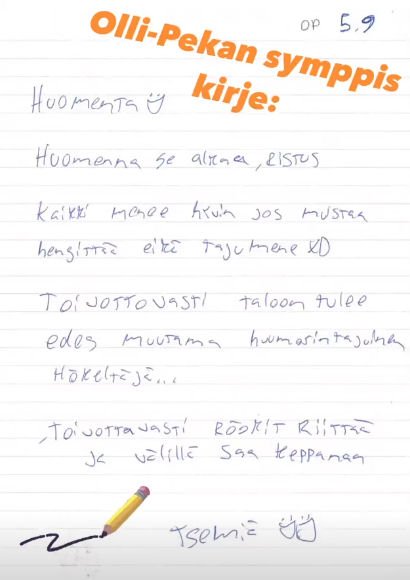 OP 5.9
Olli-Pekan symppis
kirje:
Huomenta
Huomenna se alkaa, RISTUS
Kaikki menee hyvin jos mustaa
hengittää eikä taju mene XD
Toivottovasti taloon tulee
edes muutama huumorintajuinen
Hökeltäjä...
,Toivottavasti RÖÖKIT RIITTÄÄ
ja välillä saa keppanaa
Tsemiä